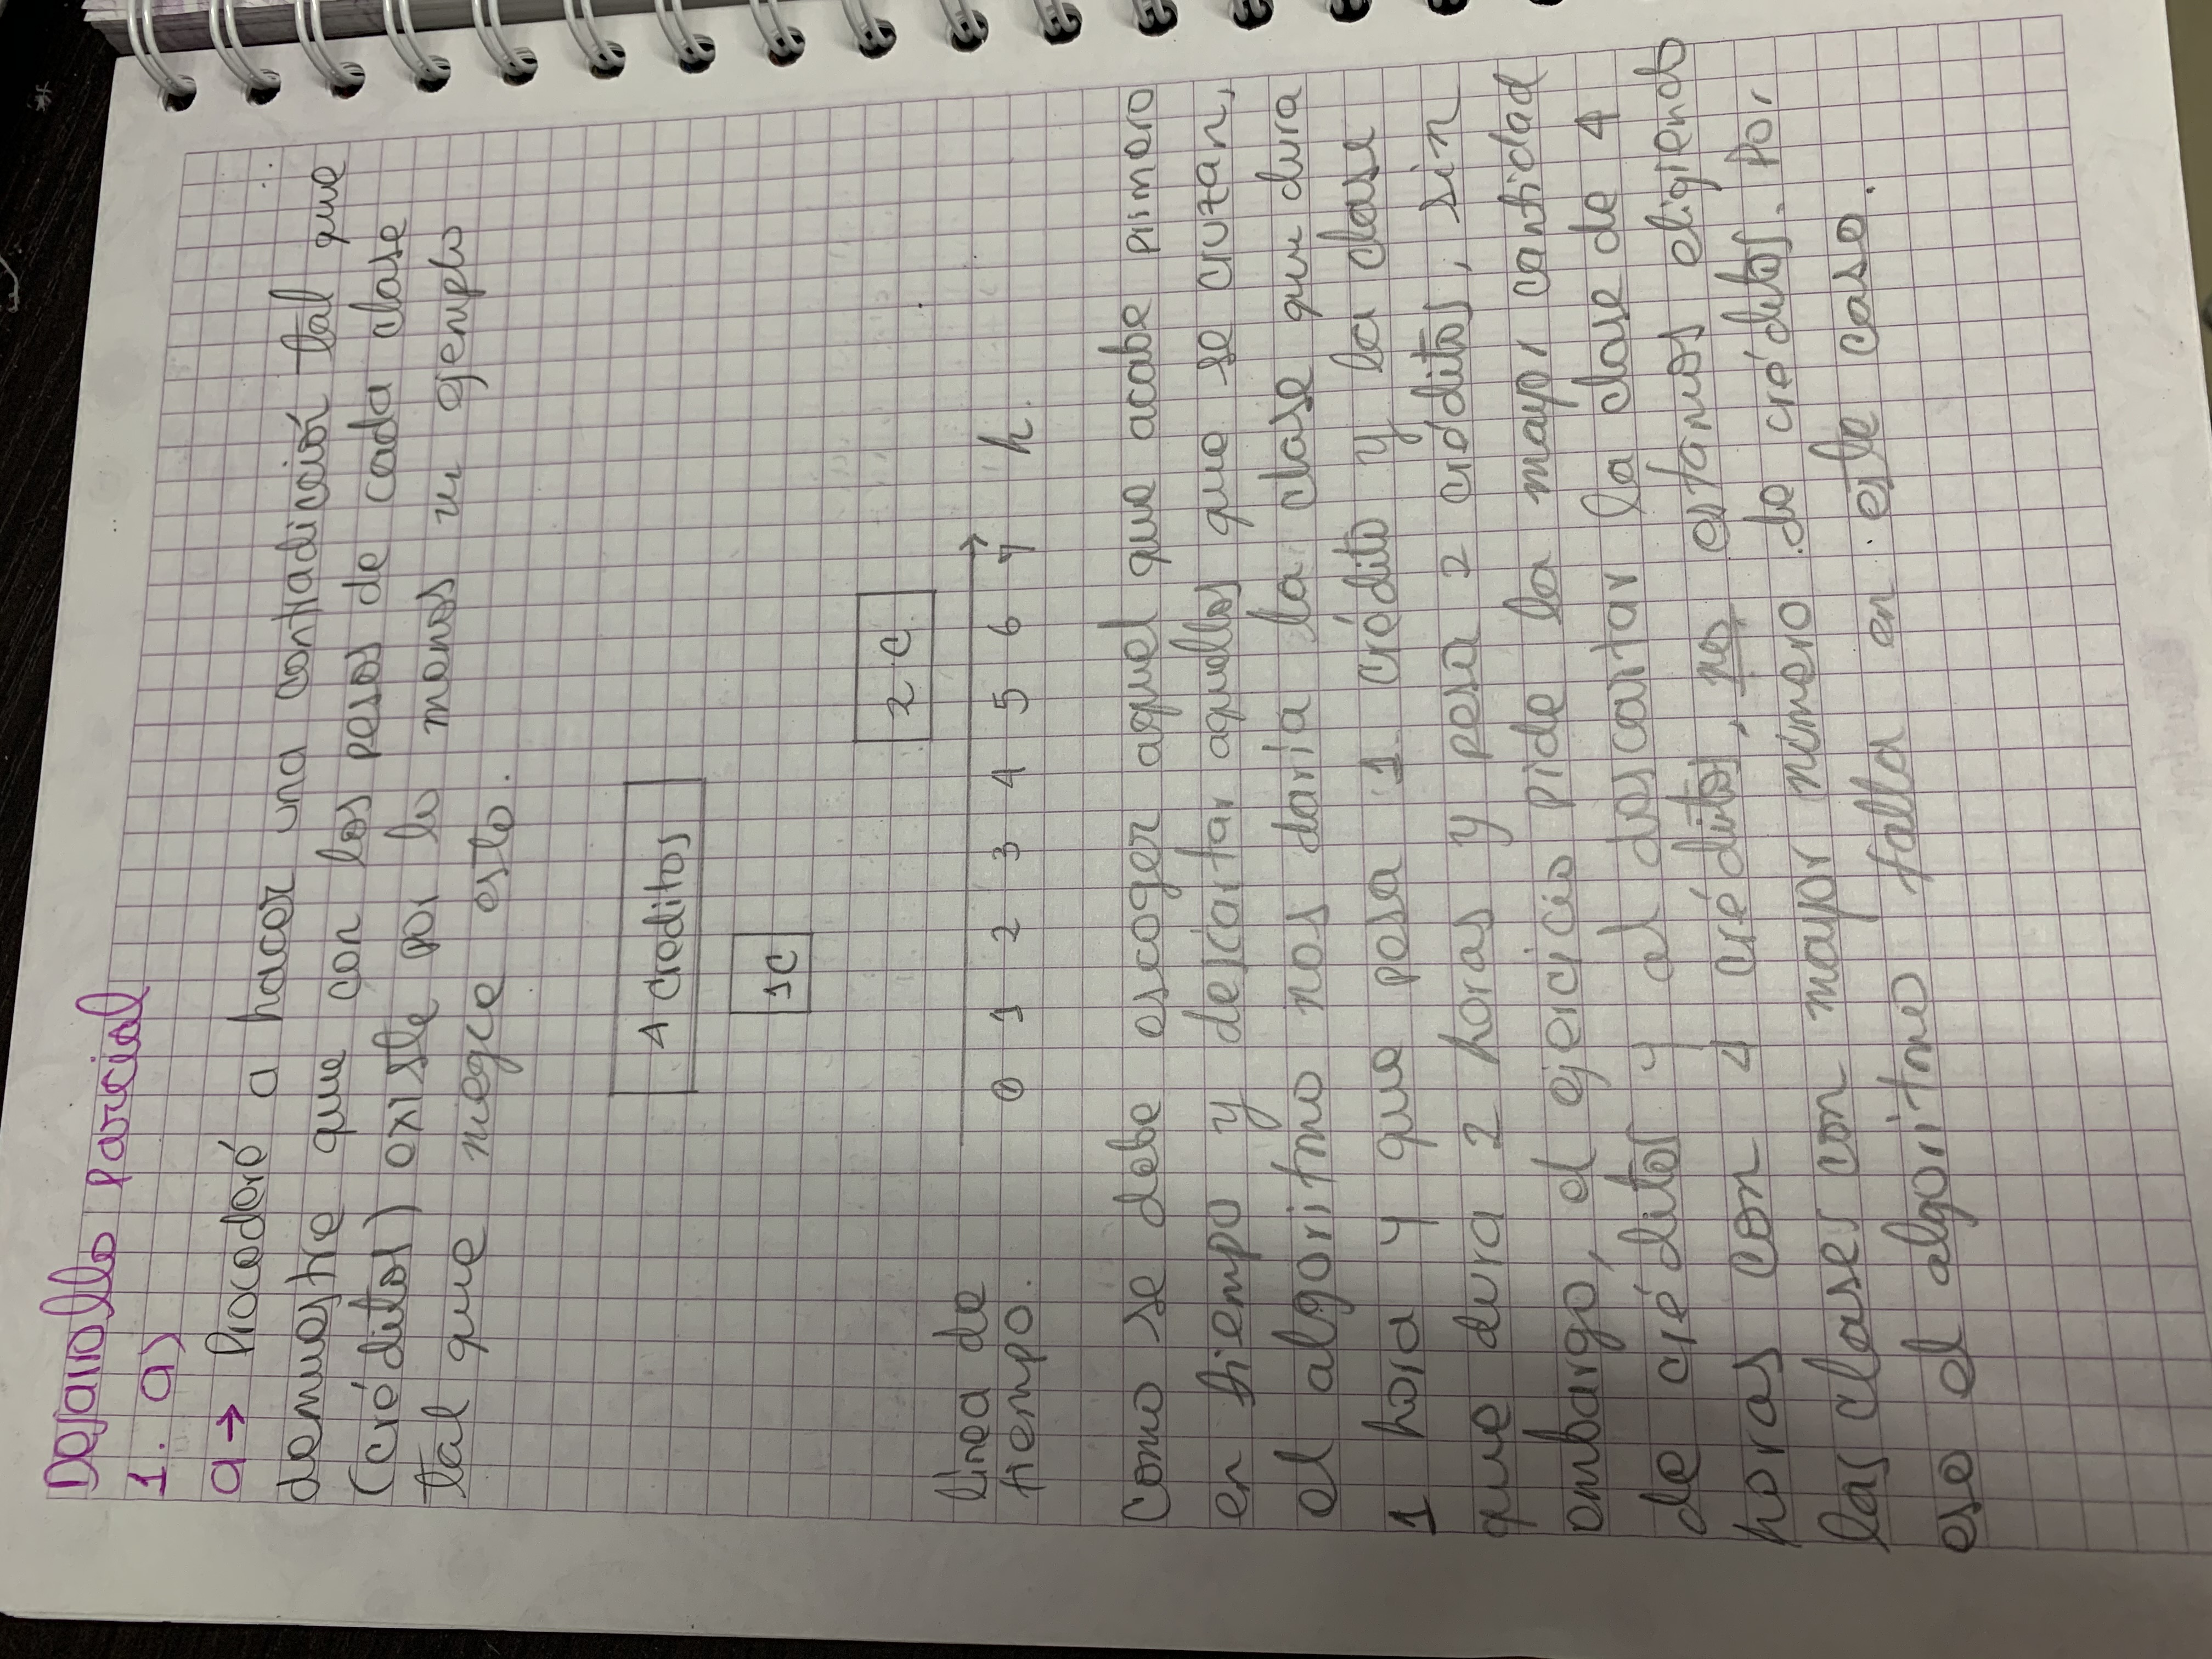 Desarrollo parcial
1. a)
a → Procederé a hacer una contradicción tal que
demuestre que con los pesos de cada clase
(créditos) existe por lo menos un ejemplo
tal que niegue esto.
4 creditos
1C
2 C
línea de
tiempo.
0 1 2 3 4 5 6 7 h.
Como se debe escoger aquel que acabe primero
en tiempo y descartar aquellos que se cruzan,
el algoritmo nos daría la clase que dura
1 hora y que pesa 1 crédito y la clase
que dura 2 horas y pesa 2 créditos, sin
embargo, el ejercicio pide la mayor cantidad
de créditos y al descartar la clase de 4
horas con 4 créditos, no estamos eligiendo
las clases con mayor número de créditos. Por
eso el algoritmo falla en este caso.